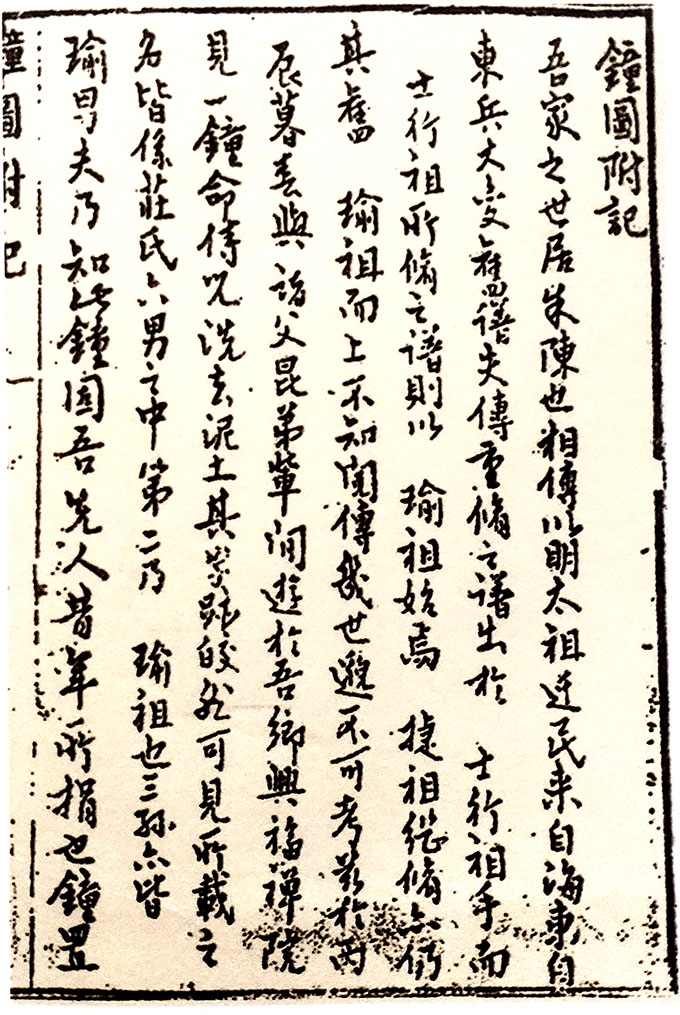 鐘圖附記
吾家之世居朱陳也相傳以明太祖迁民来自海東自
東兵大变舊譜失傳重脩之譜出於 士行祖手而
士行祖所脩之譜則以 瑜祖始焉 捷祖継脩亦仍
其舊 瑜祖而上不知閱傳幾世邈不可考岁於丙
辰暮春與諸父昆弟輩閒遊於吾鄉興福禪院
見一鐘命侍児洗去泥土其字跡皎然可見所載之
名皆係莊氏六男之中第二乃 瑜祖也三孫亦皆
瑜男夫乃知此鐘固吾先人昔年所捐也鐘置
鐘圖附記 一